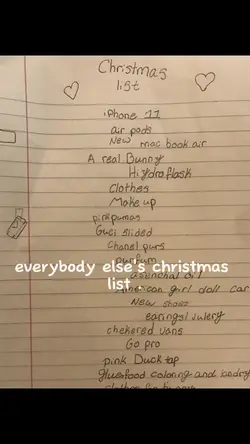 Christmas
list
iPhone 11
air pods
New mac book air
A real Bunny
Hydroflask
clothes
Make up
pink pumas
Guci slides
chanel purs
purfum
everybody else's christmas
list -
American girl doll car
New shoes
earings/ julery
chekered vans
Go pro
pink Duck tap
coloring and